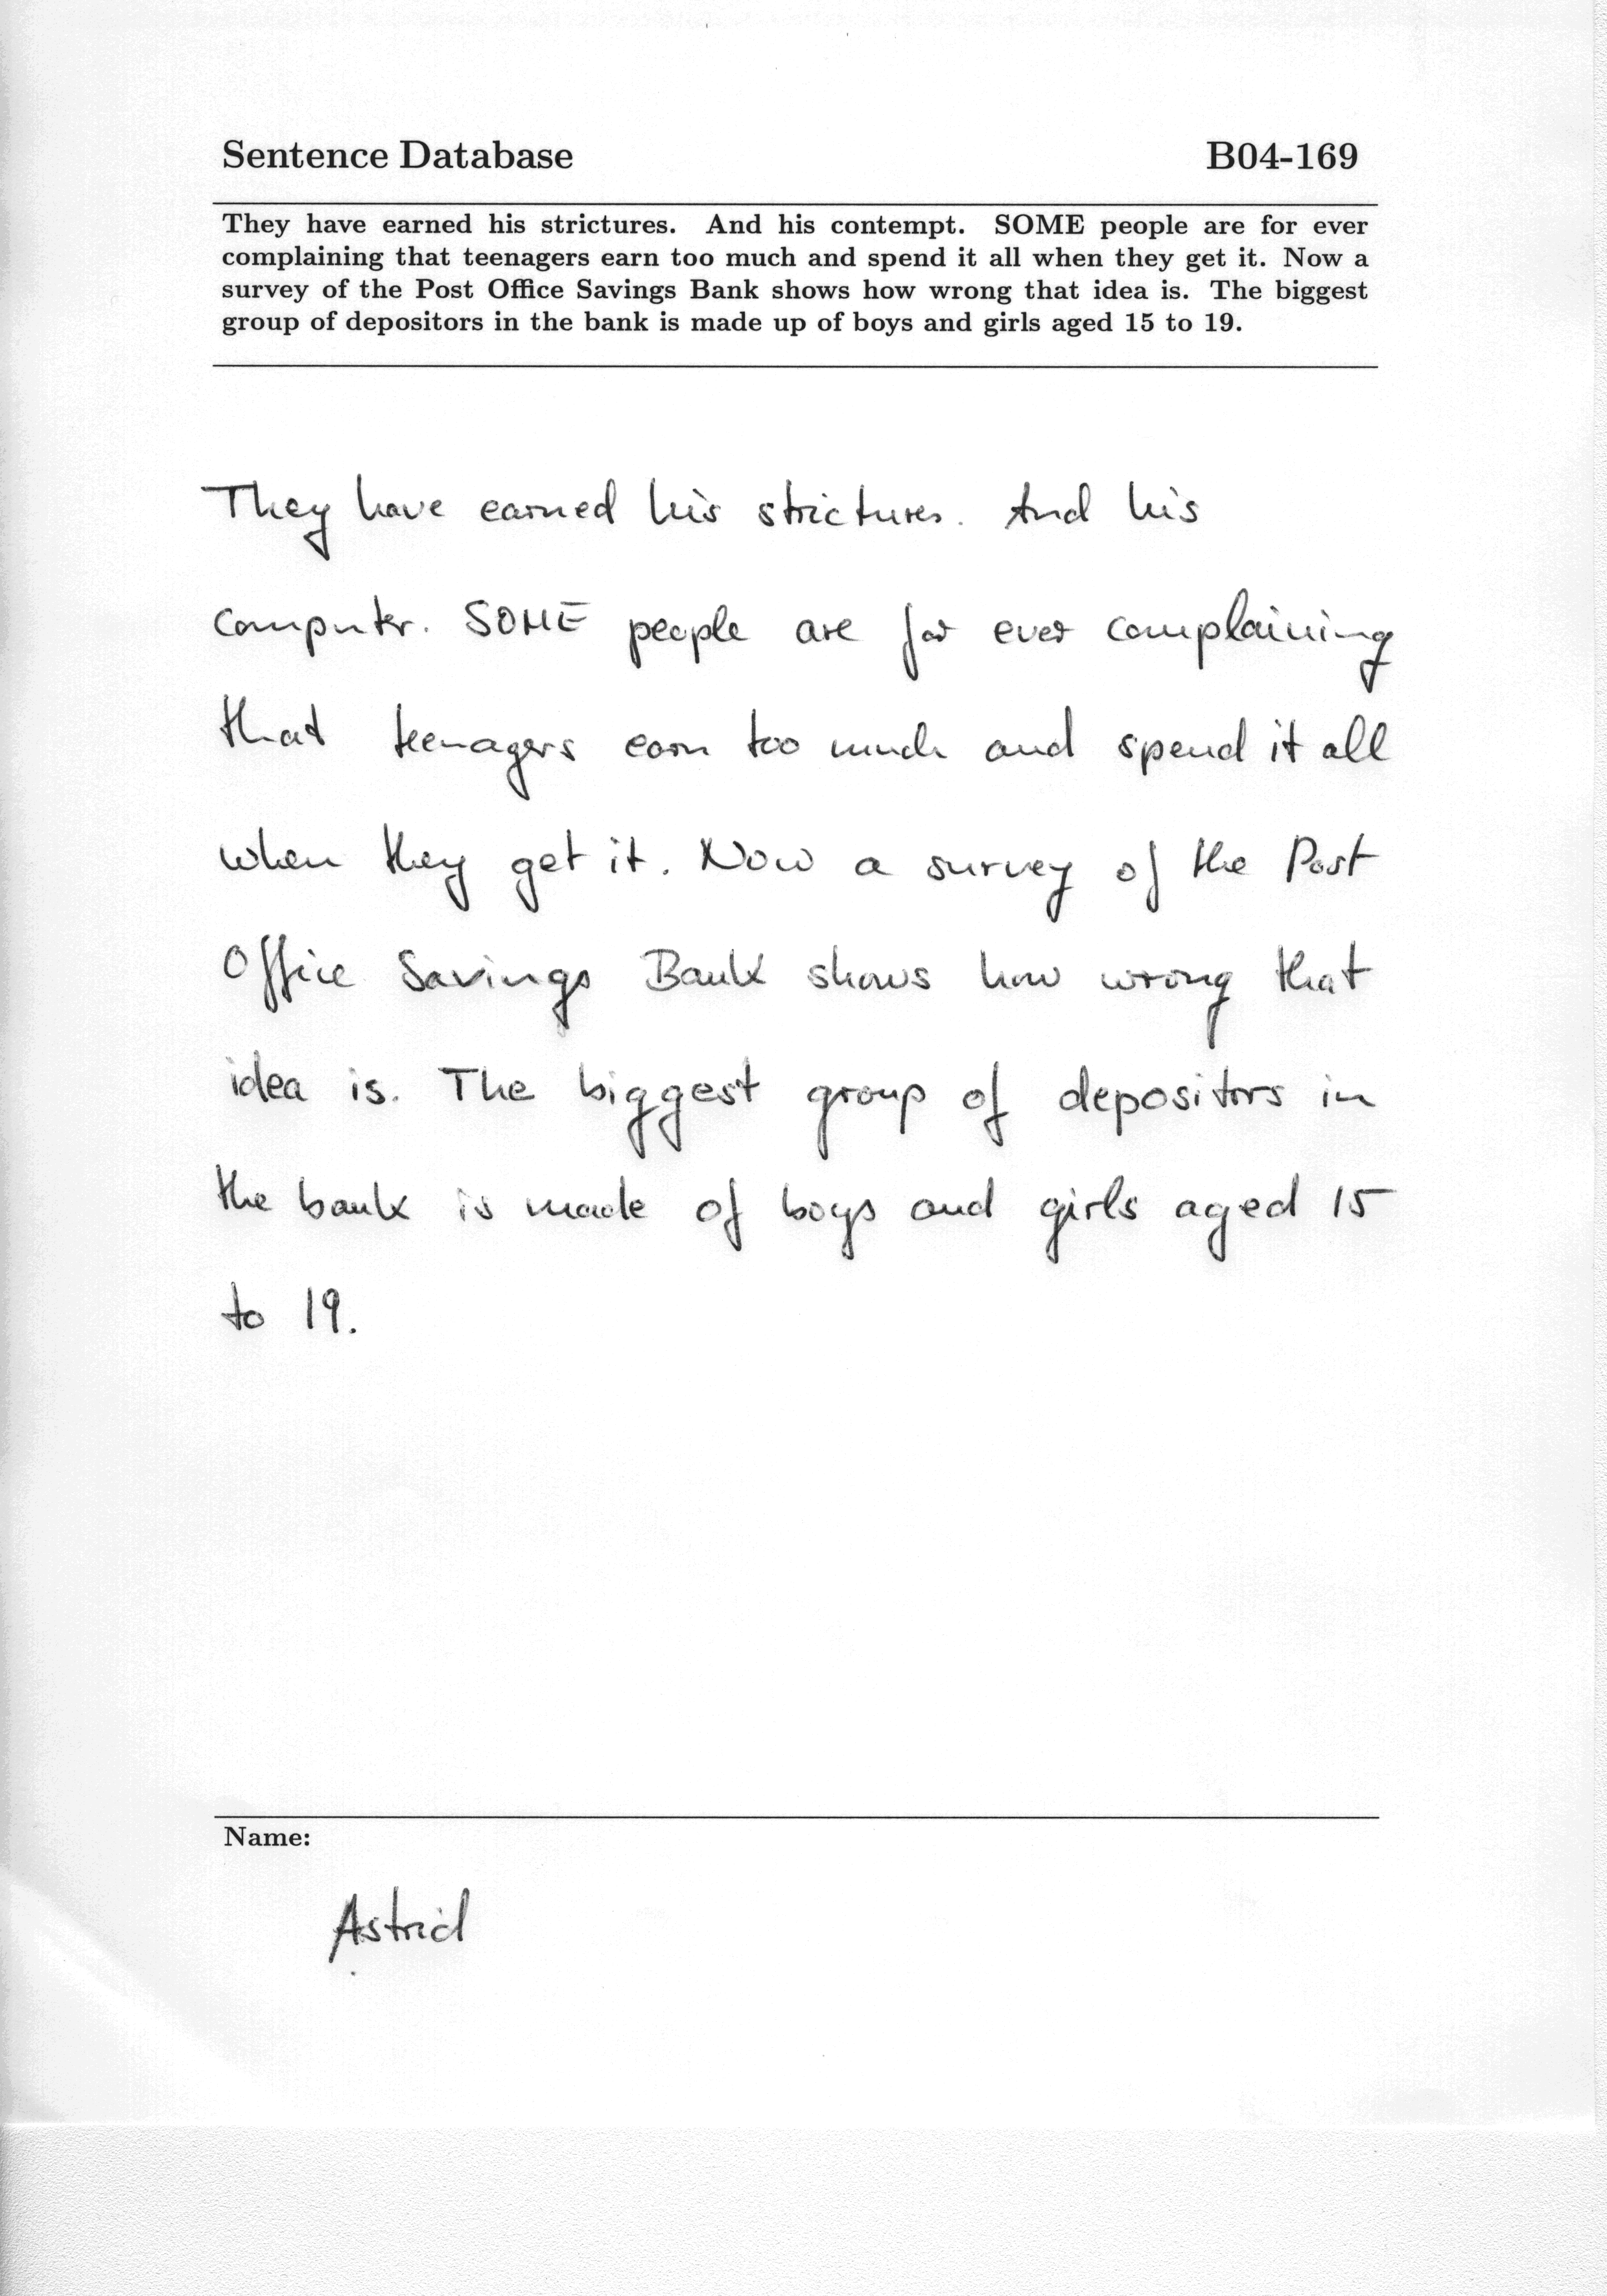 Sentence Database B04-169
They have earned his strictures. And his contempt. SOME people are for ever
complaining that teenagers earn too much and spend it all when they get it. Now a
survey of the Post Office Savings Bank shows how wrong that idea is. The biggest
group of depositors in the bank is made up of boys and girls aged 15 to 19.
They have earned his strictures. And his
computer. SOME people are for ever complaining
that teenagers earn too much and spend it all
when they get it. Now a survey of the Post
Office Savings Bank shows how wrong that
idea is. The biggest group of depositors in
the bank is made of boys and girls aged 15
to 19.
Name:
Astrid